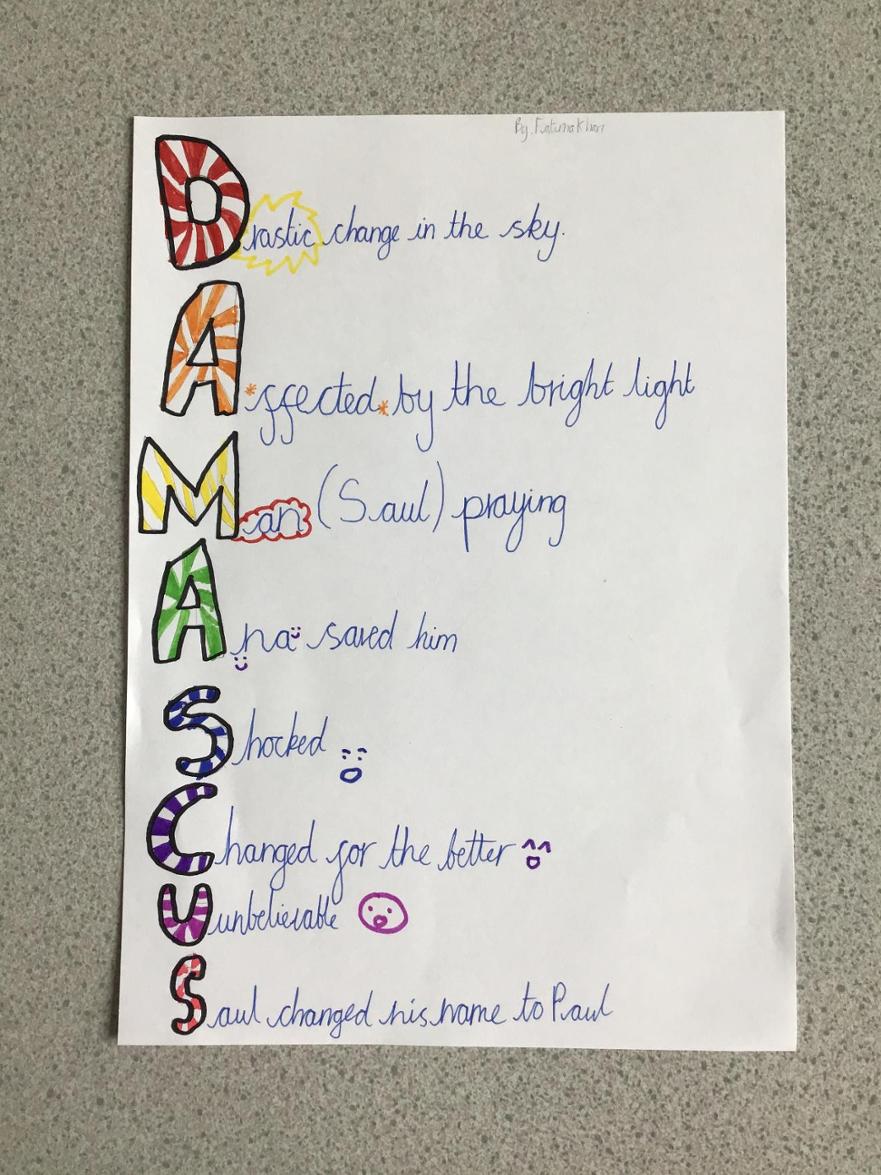 By. Fatima Khan
Drastic change in the sky.
Affected by the bright light
Man (Saul) praying
Ana saved him
Shocked
Changed for the better
Uunbelievable
Saul changed his name to Paul